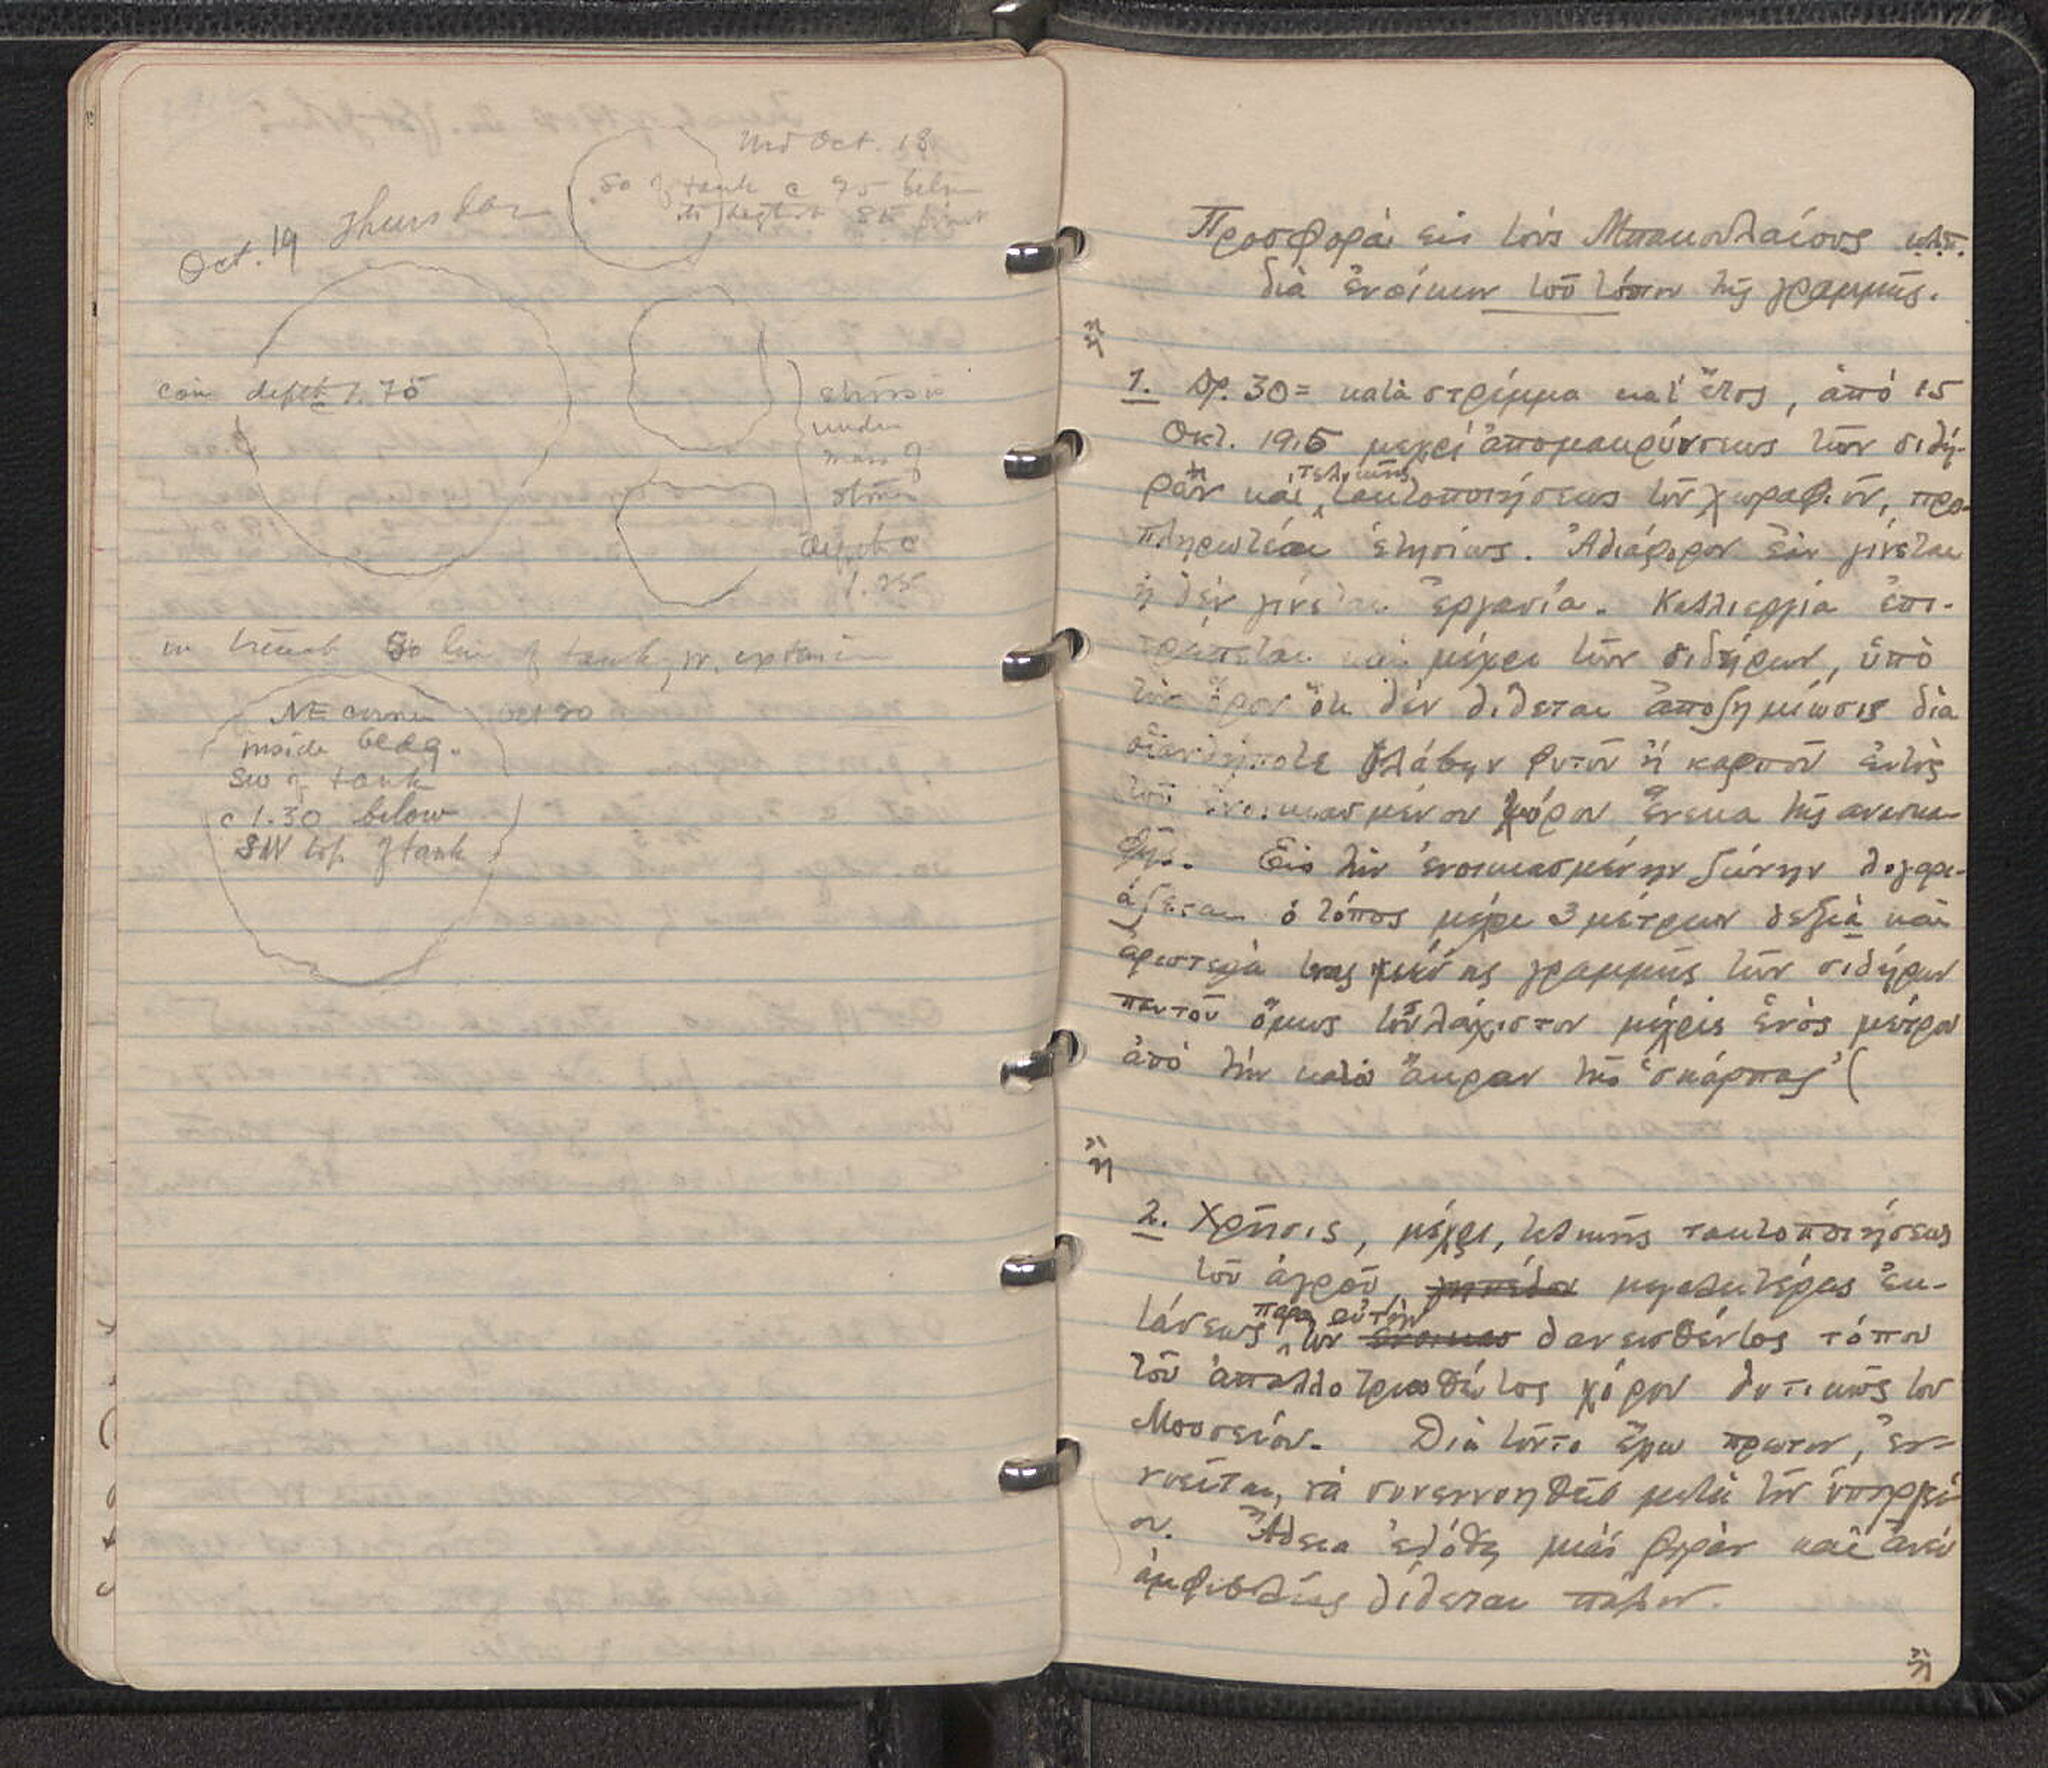 Wed Oct. 18
So of tank c 95 below
Oct. 19 Thursday
coin depth c 1.75
under
mass of
stones
depth c
1.235
in trench So line of tank, W. extension
NE corner Oct 20
inside bldg.
SW of tank
c 1.30 below
SW top of tank
Προσφοραί εις τους Μπακουλαίους κ.λ.π.
διά ἐνοίκιον τοῦ τόπου τῆς γραμμῆς.
ἤ
1. Δρ. 30= κατά στρέμμα κατ' ἔτος, ἀπό 15
Οκτ. μεχρί ἀπομακρύνσεως τῶν σιδή-
ρων καί τελικῆς τακτοποιήσεως τῶν χωραφιῶν, προ-
πληρωτέα ἐτησίως. Ἀδιάφορον ἐάν γίνεται
ἤ δέν γίνεται ἐργασία. Καλλιεργία ἐπι-
τρέπεται καί μέχρι τῶν σιδήρων, ὑπὸ
τόν ὅρον ὅτι δέν δίδεται ἀποζημίωσις διά
οἱανδήποτε βλάβην φυτοῦ ἤ καρποῦ ἐντὸς
τοῦ ἐνοικιασμένου χώρου ἕνεκα τῆς ανασκα-
φῆς. Εἰς τήν ἐνοικιασμένην ζώνην λογαρι-
άζεται ὁ τόπος μέχρι 3 μέτρων δεξιὰ καὶ
ἀριστερὰ τῆς γραμμῆς τῶν σιδήρων
παντοῦ ὅμως τοὐλάχιστον μέχρις ἑνός μέτρου
ἀπό τήν κατω ἄκραν τῆς 'σκάρπας' (
ἤ
2. Χρῆσις, μέχρι τελικῆς τακτοποιήσεως
τοῦ ἀγροῦ, γηπέδου μεγαλυτέρας ἐκ-
τάσεως παρά αὐτήν του ἐνοικιασ δανεισθέντος τόπου
τοῦ ἀπαλλοτριωθέντος χώρου δυτικῶς του
Μουσείου. Διὰ τοῦτο ἔχω πρωτον, ἐν-
νοεῖται, νὰ συνεννοηθῶ μετὰ τοῦ ὑπουργεί-
ου. Ἄδεια ἐδόθη μιάν φοράν καὶ ἄνευ
ἀμφιβολίας δίδεται πάλιν.
ἤ